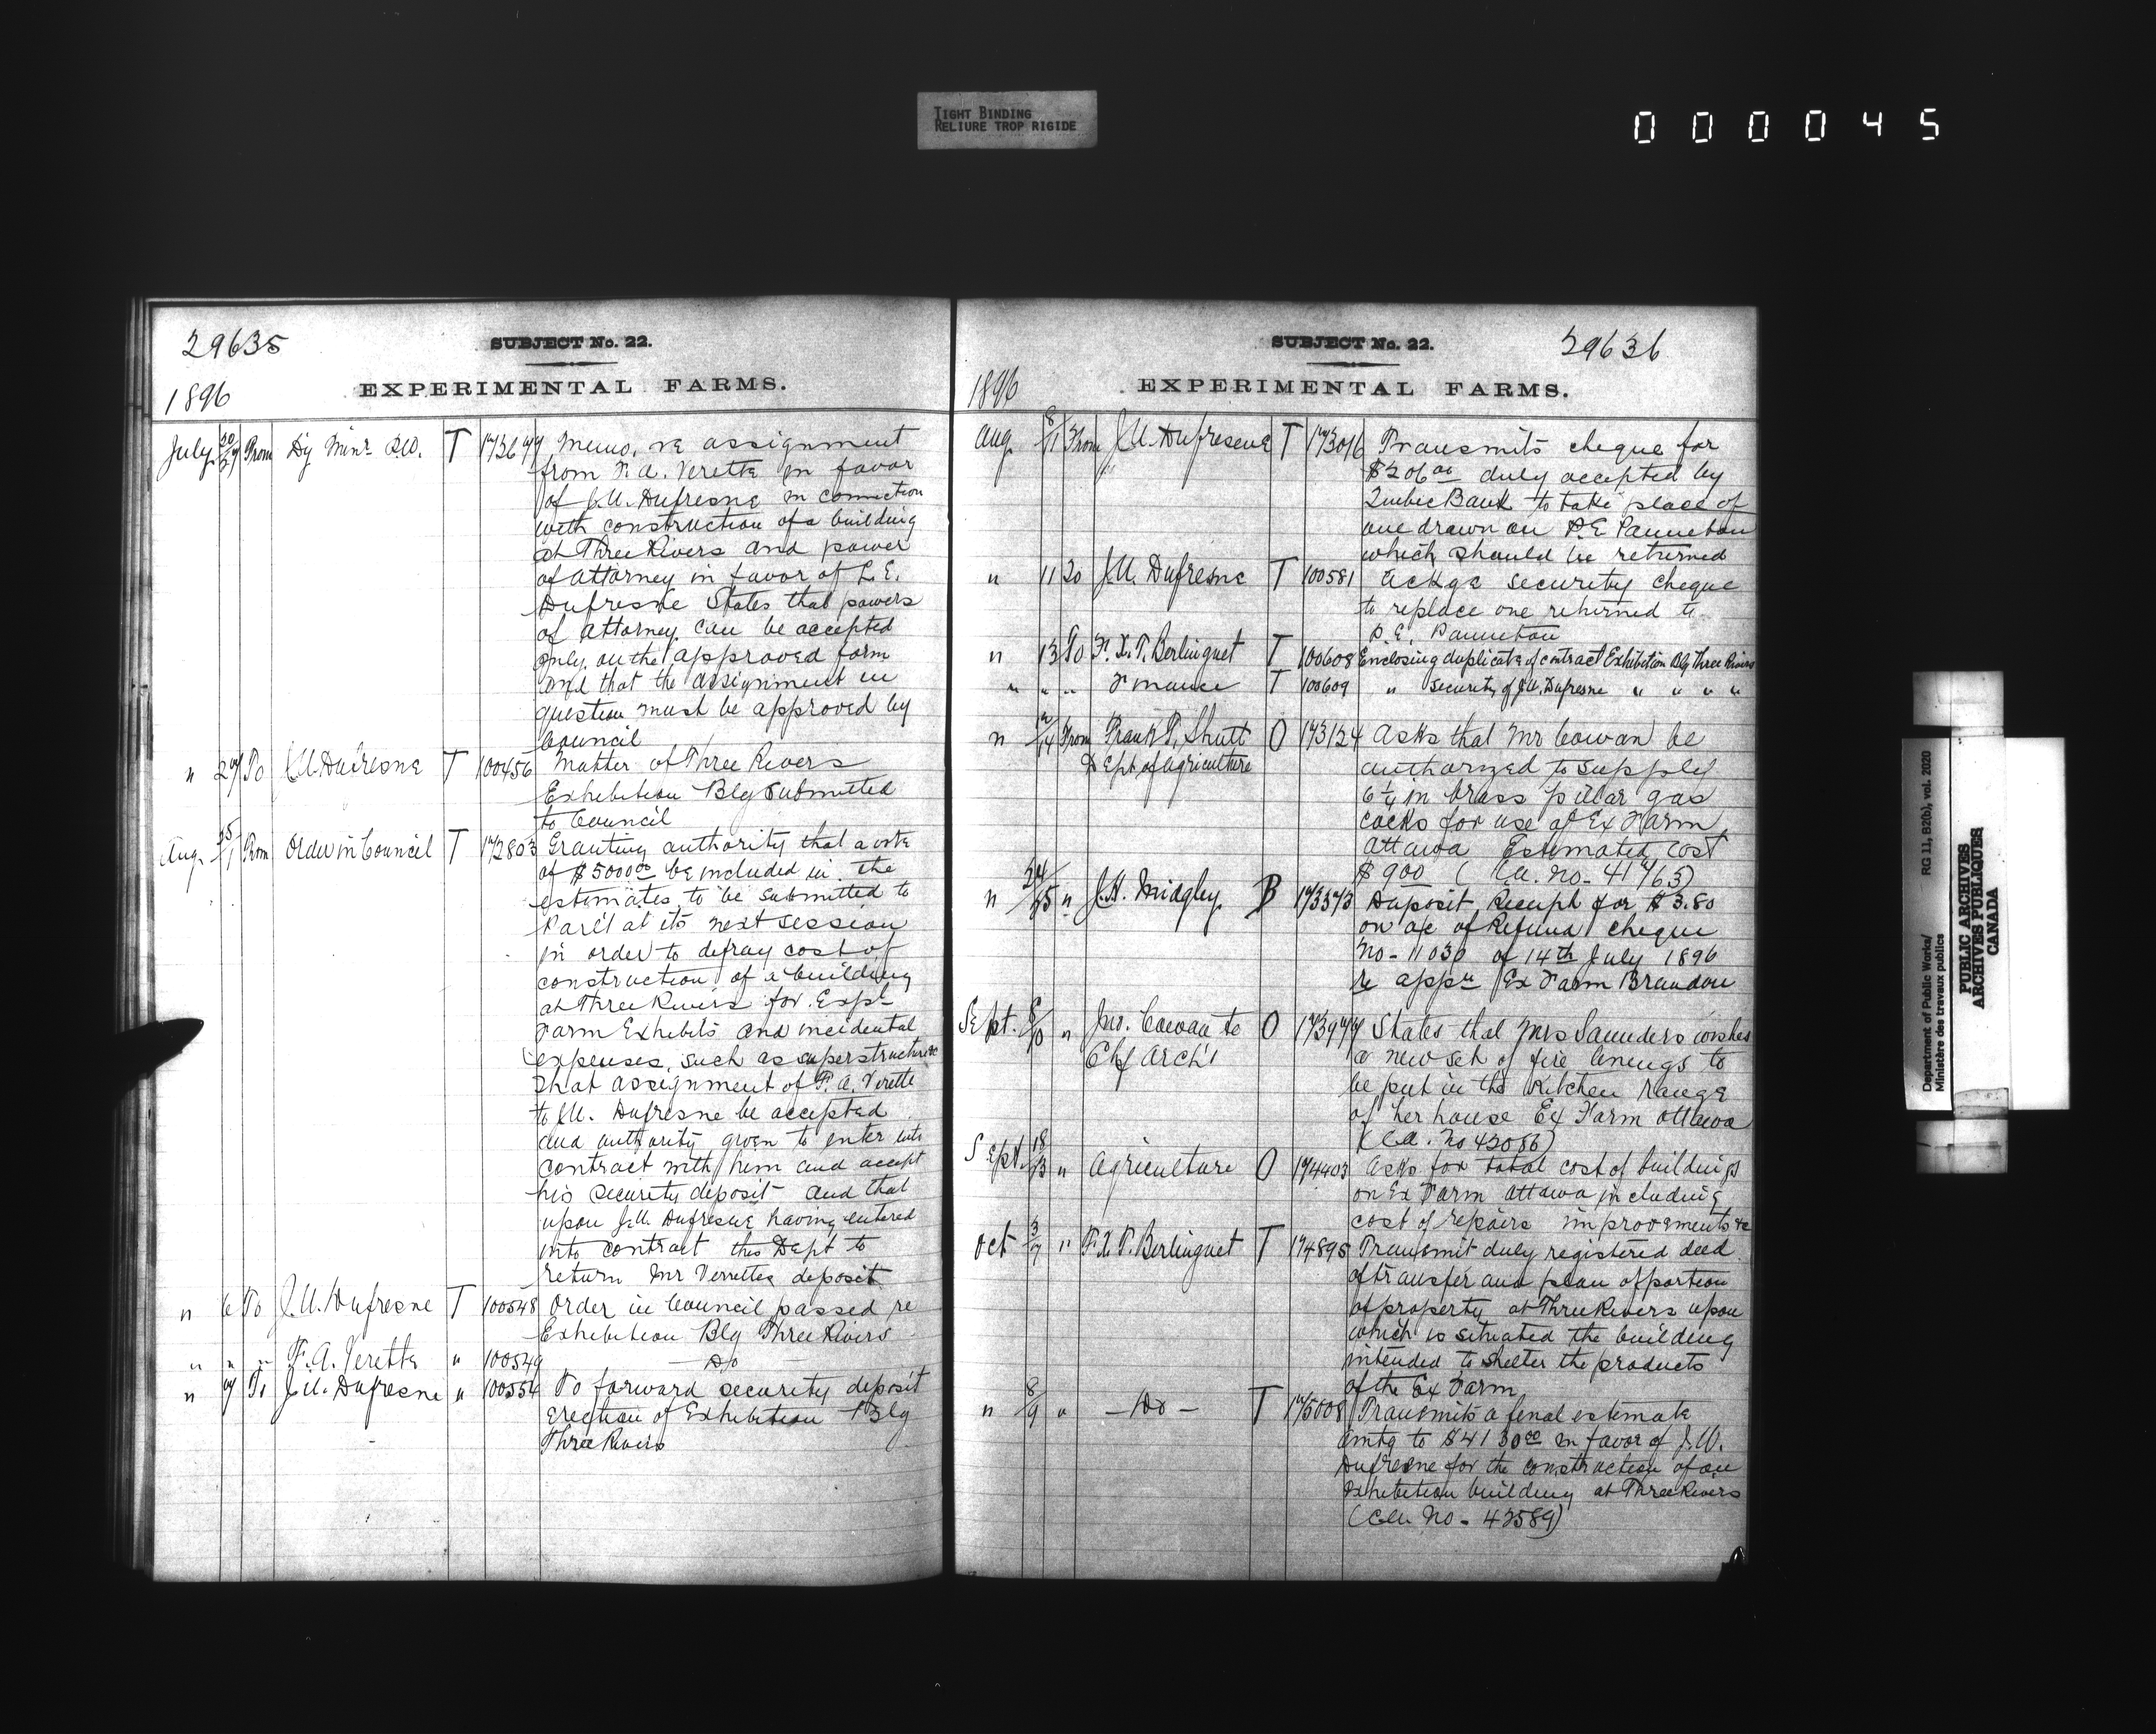 TIGHT BINDING
RELIURE TROP RIGIDE
000045
29635
SUBJECT No. 22.
1896
EXPERIMENTAL FARMS.
July 20/27 From Dy Minr P.W. T 172677 Memo, re assignment
from F. A. Verette in favor
of J. U. Dufresne in connection
with construction of a building
at Three Rivers and power
of attorney in favor of L. E.
Dufresne States that powers
of attorney can be accepted
only on the approved form
and that the assignment in
question must be approved by
Council
" 27 To J. U. Dufresne T 100456 Matter of Three Rivers
Exhibition Blg Submitted
to Council
Aug. 25/1 From Order in Council T 172803 Granting authority that a vote
of $5000.00 be included in the
estimates to be submitted to
Parl't at its next session
in order to defray cost of
construction of a building
at Three Rivers for Expl
Farm Exhibits and incidental
expenses, such as superstructure &c
that assignment of F. A. Verette
to J. U. Dufresne be accepted
and authority given to enter into
contract with him and accept
his security deposit and that
upon J. U. Dufresne having entered
into contract this Dept to
return Mr Verrettes deposit
" 6 To J. U. Dufresne T 100548 Order in Council passed re
Exhibition Blg Three Rivers
" " " F. A. Verette " 100549 — Do —
" 7 To J. U. Dufresne " 100554 To forward security deposit
Erection of Exhibition Blg
Three Rivers
SUBJECT No. 22.
29636
1896
EXPERIMENTAL FARMS.
Aug. 8/11 From J. U. Dufresne T 173016 Transmits cheque for
$206.00 duly accepted by
Quebec Bank to take place of
one drawn on P. E. Panneton
which should be returned
" 11 To J. U. Dufresne T 100581 Ackge security cheque
to replace one returned to
P. E. Panneton
" 13 To F. X. T. Berlinguet T 100608 Enclosing duplicate of contract Exhibition Blg Three Rivers
" " " Finance T 100609 " Security of J. U. Dufresne " " " "
" 12/14 From Frank T. Shutt O 173124 Asks that Mr Cowan be
Dept of Agriculture authorized to supply
6 1/4 in brass pillar gas
cocks for use at Ex Farm
Ottawa Estimated cost
$9.00 (Ca. No. 41763)
" 24/25 " J. H. Midgley B 173373 Deposit Receipt for $3.80
on a/c of Refund cheque
No - 11030 of 14th July 1896
re appn Ex Farm Brandon
Sept. 8/10 " Jno. Cowan to O 173977 States that Mrs Saunders wishes
Chf Arch't a new set of fire linings to
be put in the kitchen range
of her house Ex Farm Ottawa
(Ca. No 42086)
Sept. 18/23 " Agriculture O 174403 Asks for total cost of buildings
on Ex Farm Ottawa including
cost of repairs improvements &c
Oct 3/7 " F. X. T. Berlinguet T 174895 Transmit duly registered deed
of transfer and plan of portion
of property at Three Rivers upon
which is situated the building
intended to shelter the products
of the Ex Farm
" 8/9 " — Do — T 175008 Transmits a final estimate
amtg to $4130.00 in favor of J. U.
Dufresne for the construction of an
Exhibition building at Three Rivers
(Ca. No - 42589)
Department of Public Works/
Ministère des travaux publics
RG 11, B2(b), vol. 2020
PUBLIC ARCHIVES
ARCHIVES PUBLIQUES
CANADA